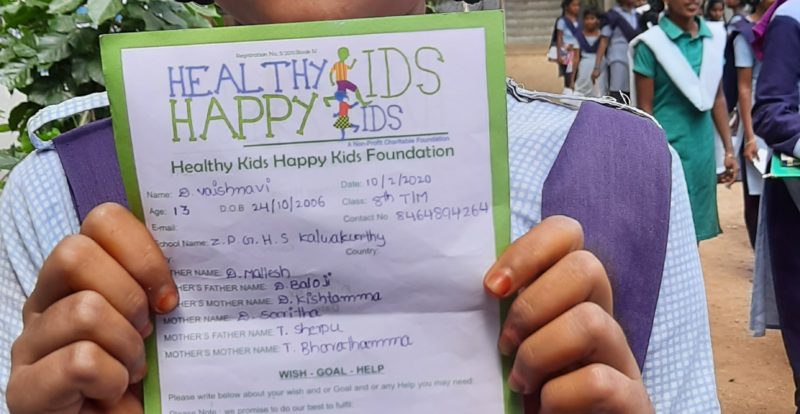 Registration No. 5/2015(Book 5)
HEALTHY KIDS
HAPPY KIDS
A Non-Profit Charitable Foundation
Healthy Kids Happy Kids Foundation
Name: D. Vaishnavi Date: 10/2/2020
Age: 13 D.O.B 24/10/2006 Class: 8th TIM
E-mail: Contact No 8464894264
School Name: Z.P G.H.S Kalwakurthy
Country:
THER NAME: D. Mallesh
THER'S FATHER NAME: D. Baloji
HER'S MOTHER NAME: D. Kishtamma
MOTHER NAME: D. Saritha
MOTHER'S FATHER NAME: T. Sherpu
MOTHER'S MOTHER NAME: T. Bharathamma
WISH - GOAL - HELP
Please write below about your wish and or Goal and or any Help you may need:
Please Note : we promise to do our best to fulfil: